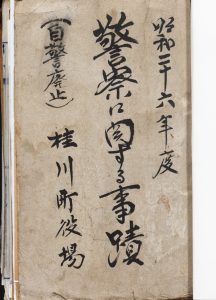 昭和二十六年度
警察に関する事蹟
桂川町役場
(自警廃止)